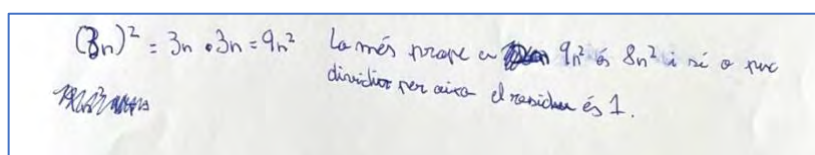 (3n)² = 3n • 3n = 9n² Lo més prope a 9n² és 8n² i si o puc
dividir per aixo el residu és 1.